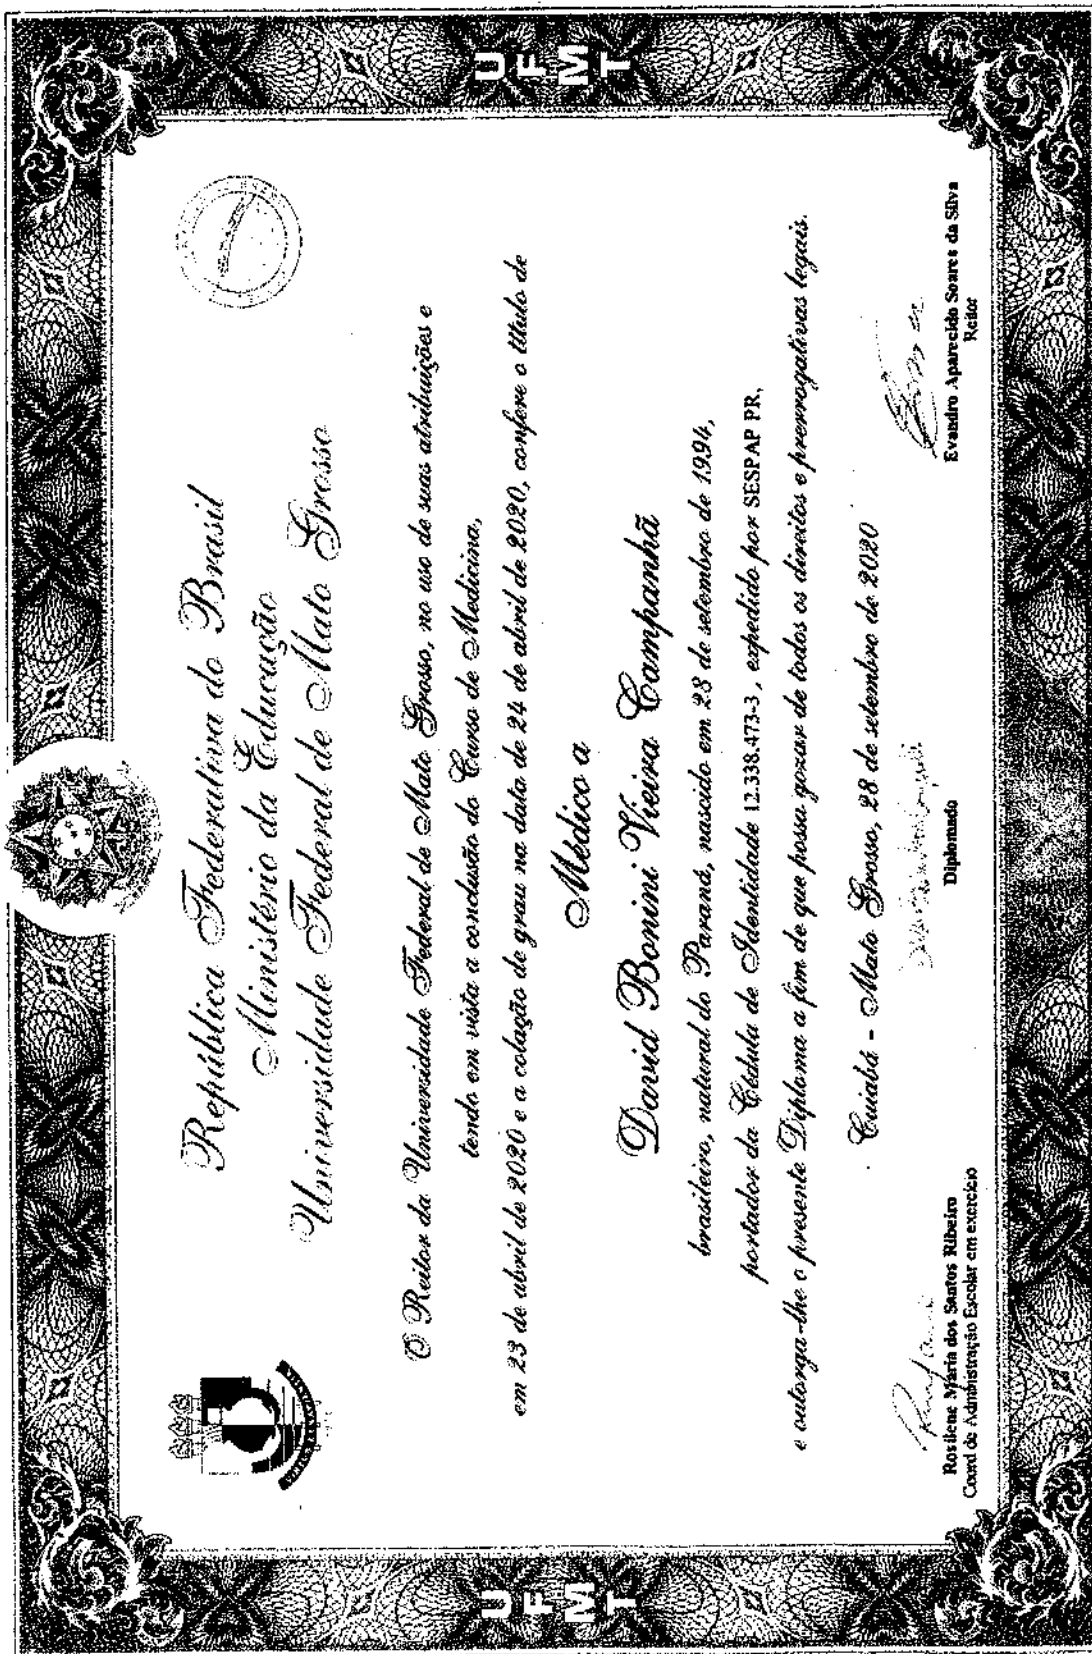 UFMT
República Federativa do Brasil
Ministério da Educação
Universidade Federal de Mato Grosso
O Reitor da Universidade Federal de Mato Grosso, no uso de suas atribuições e
tendo em vista a conclusão do Curso de Medicina,
em 23 de abril de 2020 e a colação de grau na data de 24 de abril de 2020, confere o título de
Médico a
David Bonini Vieira Campanhã
brasileiro, natural do Paraná, nascido em 28 de setembro de 1994,
portador da Cédula de Identidade 12.338.473-3, expedido por SESPAP PR,
e outorga-lhe o presente Diploma a fim de que possa gozar de todos os direitos e prerrogativas legais.
Cuiabá - Mato Grosso, 28 de setembro de 2020
Rosilene Maria dos Santos Ribeiro
Coord de Administração Escolar em exercício
Diplomado
Evandro Aparecido Soares da Silva
Reitor
UFMT